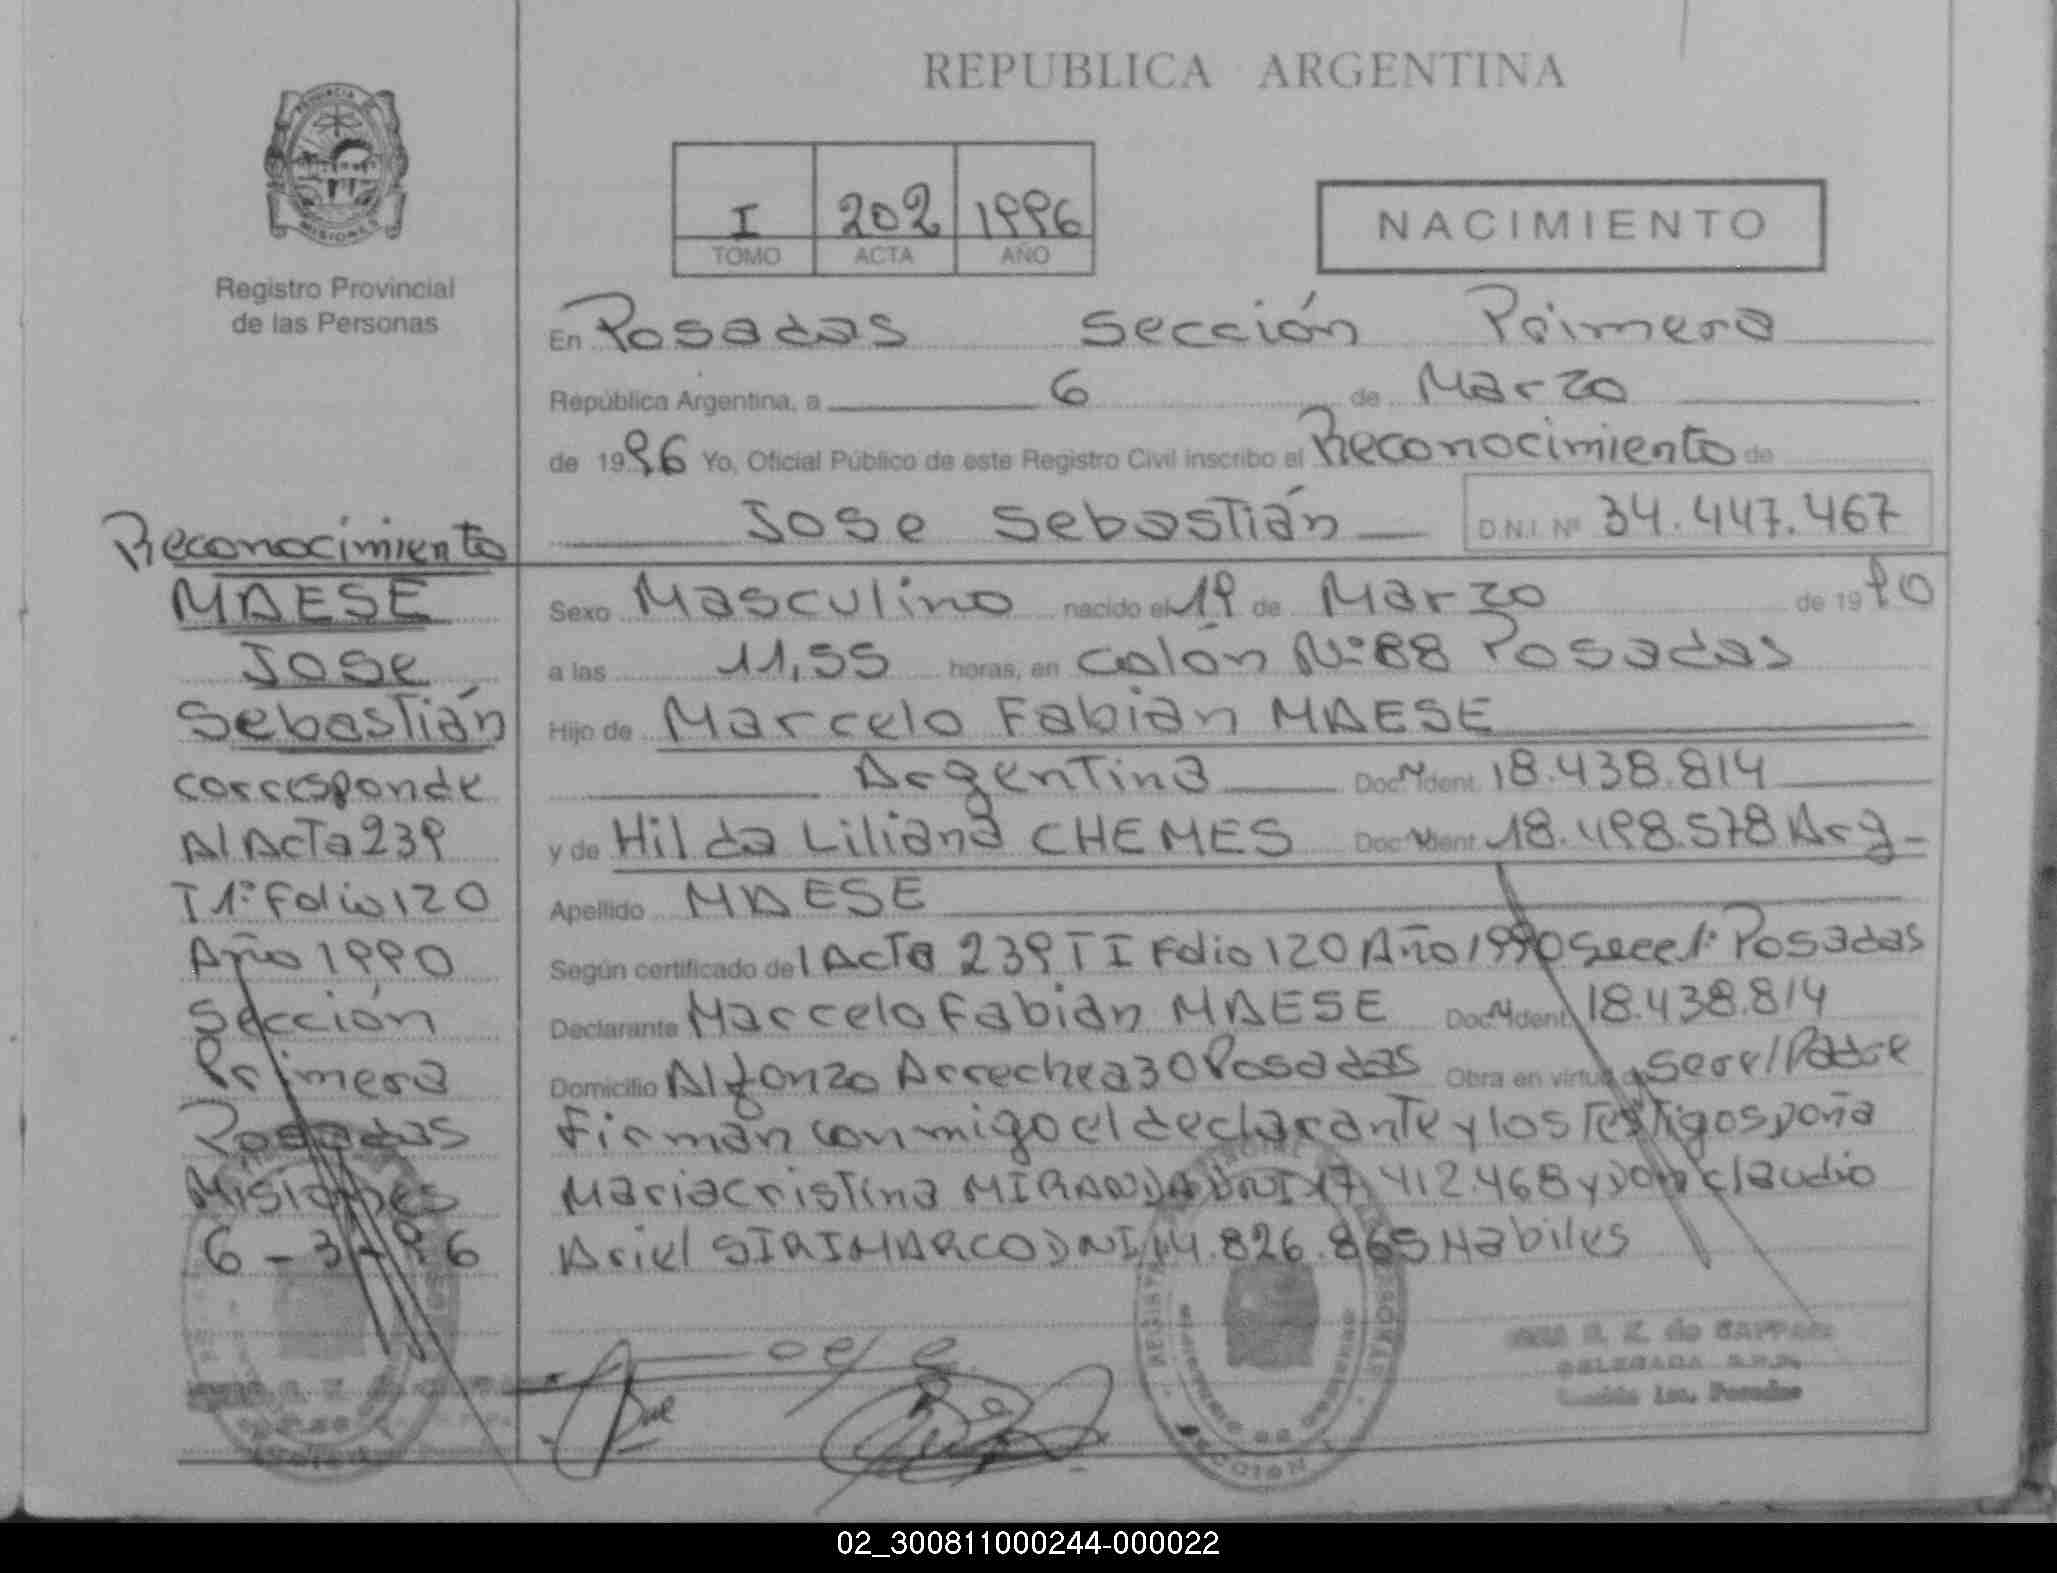 REPUBLICA ARGENTINA
PROVINCIA DE
MISIONES
Registro Provincial
de las Personas
I 202 1996
TOMO ACTA AÑO
NACIMIENTO
En Posadas Sección Primera
República Argentina, a 6 de Marzo
de 1996 Yo, Oficial Público de este Registro Civil inscribo el Reconocimiento de
Jose Sebastián D.N.I. Nº 34.447.467
Reconocimiento
MAESE
Jose
Sebastián
corresponde
Al Acta 239
T 1º Folio 120
Año 1990
Sección
Primera
Posadas
Misiones
6-3-96
Sexo Masculino nacido el 19 de Marzo de 1990
a las 11,55 horas, en Colón Nº 88 Posadas
Hijo de Marcelo Fabián MAESE
Argentina Doc. Ident. 18.438.814
y de Hilda Liliana CHEMES Doc. Ident. 18.498.578 Arg-
Apellido MAESE
Según certificado del Acta 239 T I Folio 120 Año 1990 Secc 1º Posadas
Declarante Marcelo Fabián MAESE Doc. Ident. 18.438.814
Domicilio Alfonzo Arrechea 30 Posadas Obra en virtud de ser el Padre
Firman conmigo el declarante y los Testigos Doña
Maria cristina MIRANDA DNI 17.412.468 y Don claudio
Ariel SIRIMARCO DNI 14.826.865 Habiles
DELEGADA
Sección 1ra. Posadas
02_300811000244-000022